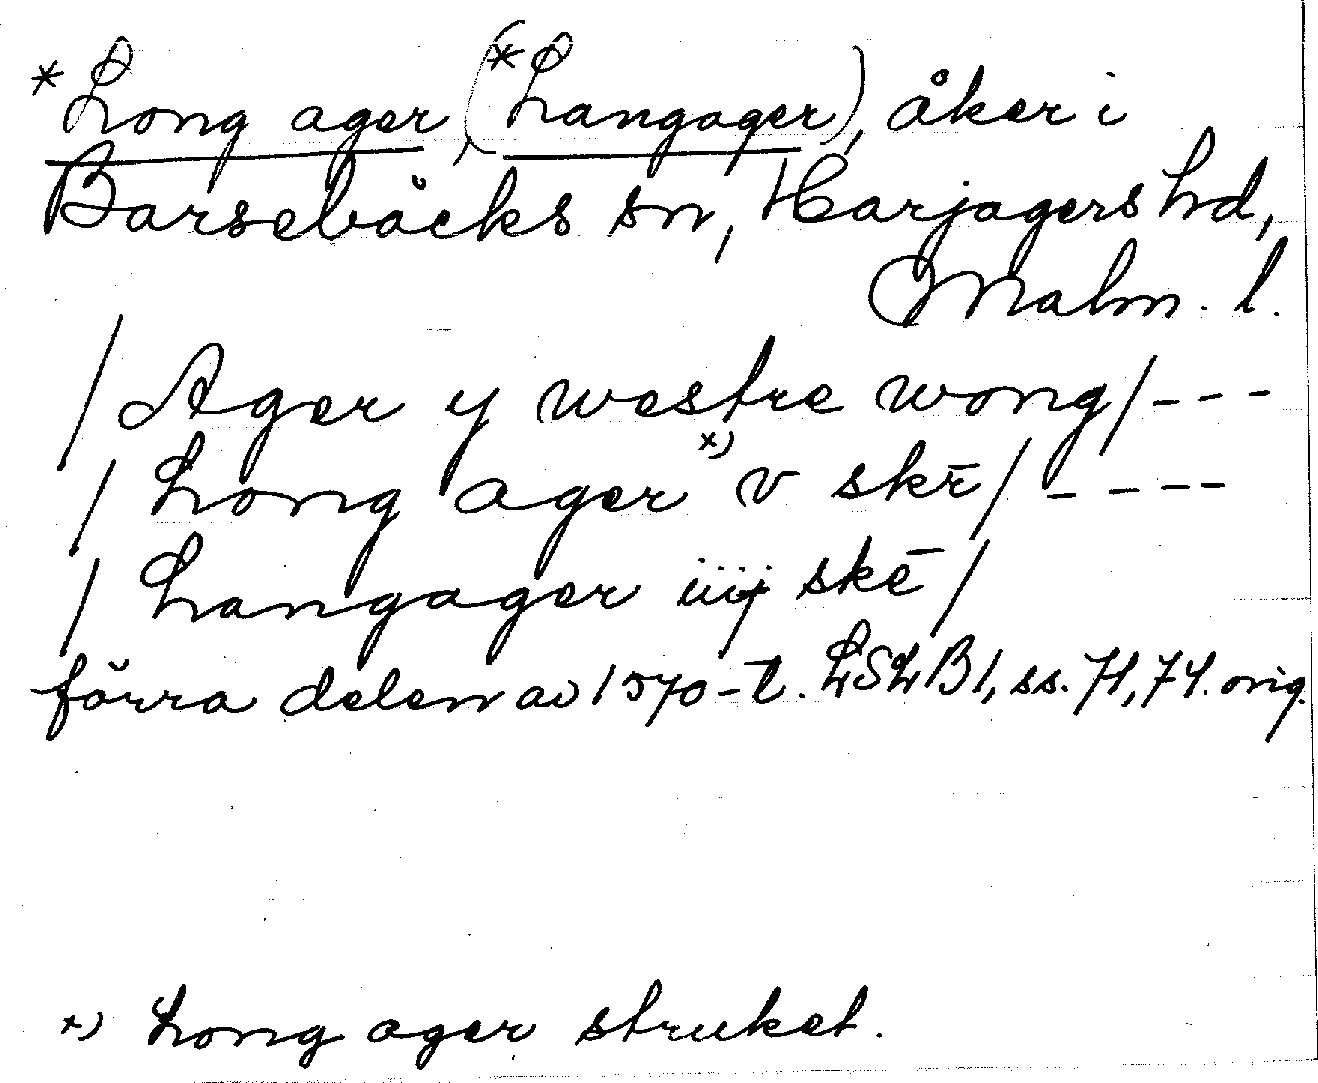 *Long ager, (*Langager), åker i
Barsebäcks sn, Harjagers hd,
Malm. l.
/Ager y westre wong/---
/Long ager x) v skē/----
/Langager iiij skē/
förra delen av 1570-t. LSLB1, ss. 71, 74. orig.
x) Long ager struket.